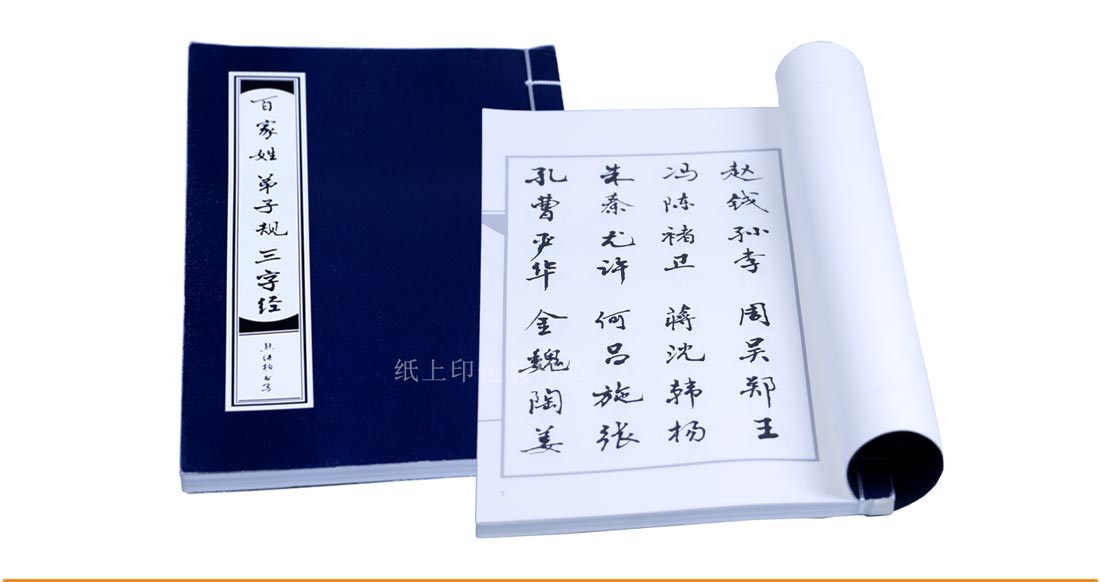 百家姓 弟子规 三字经
赵钱孙李 周吴郑王
冯陈褚卫 蒋沈韩杨
朱秦尤许 何吕施张
孔曹严华 金魏陶姜
纸上印包装制品
1